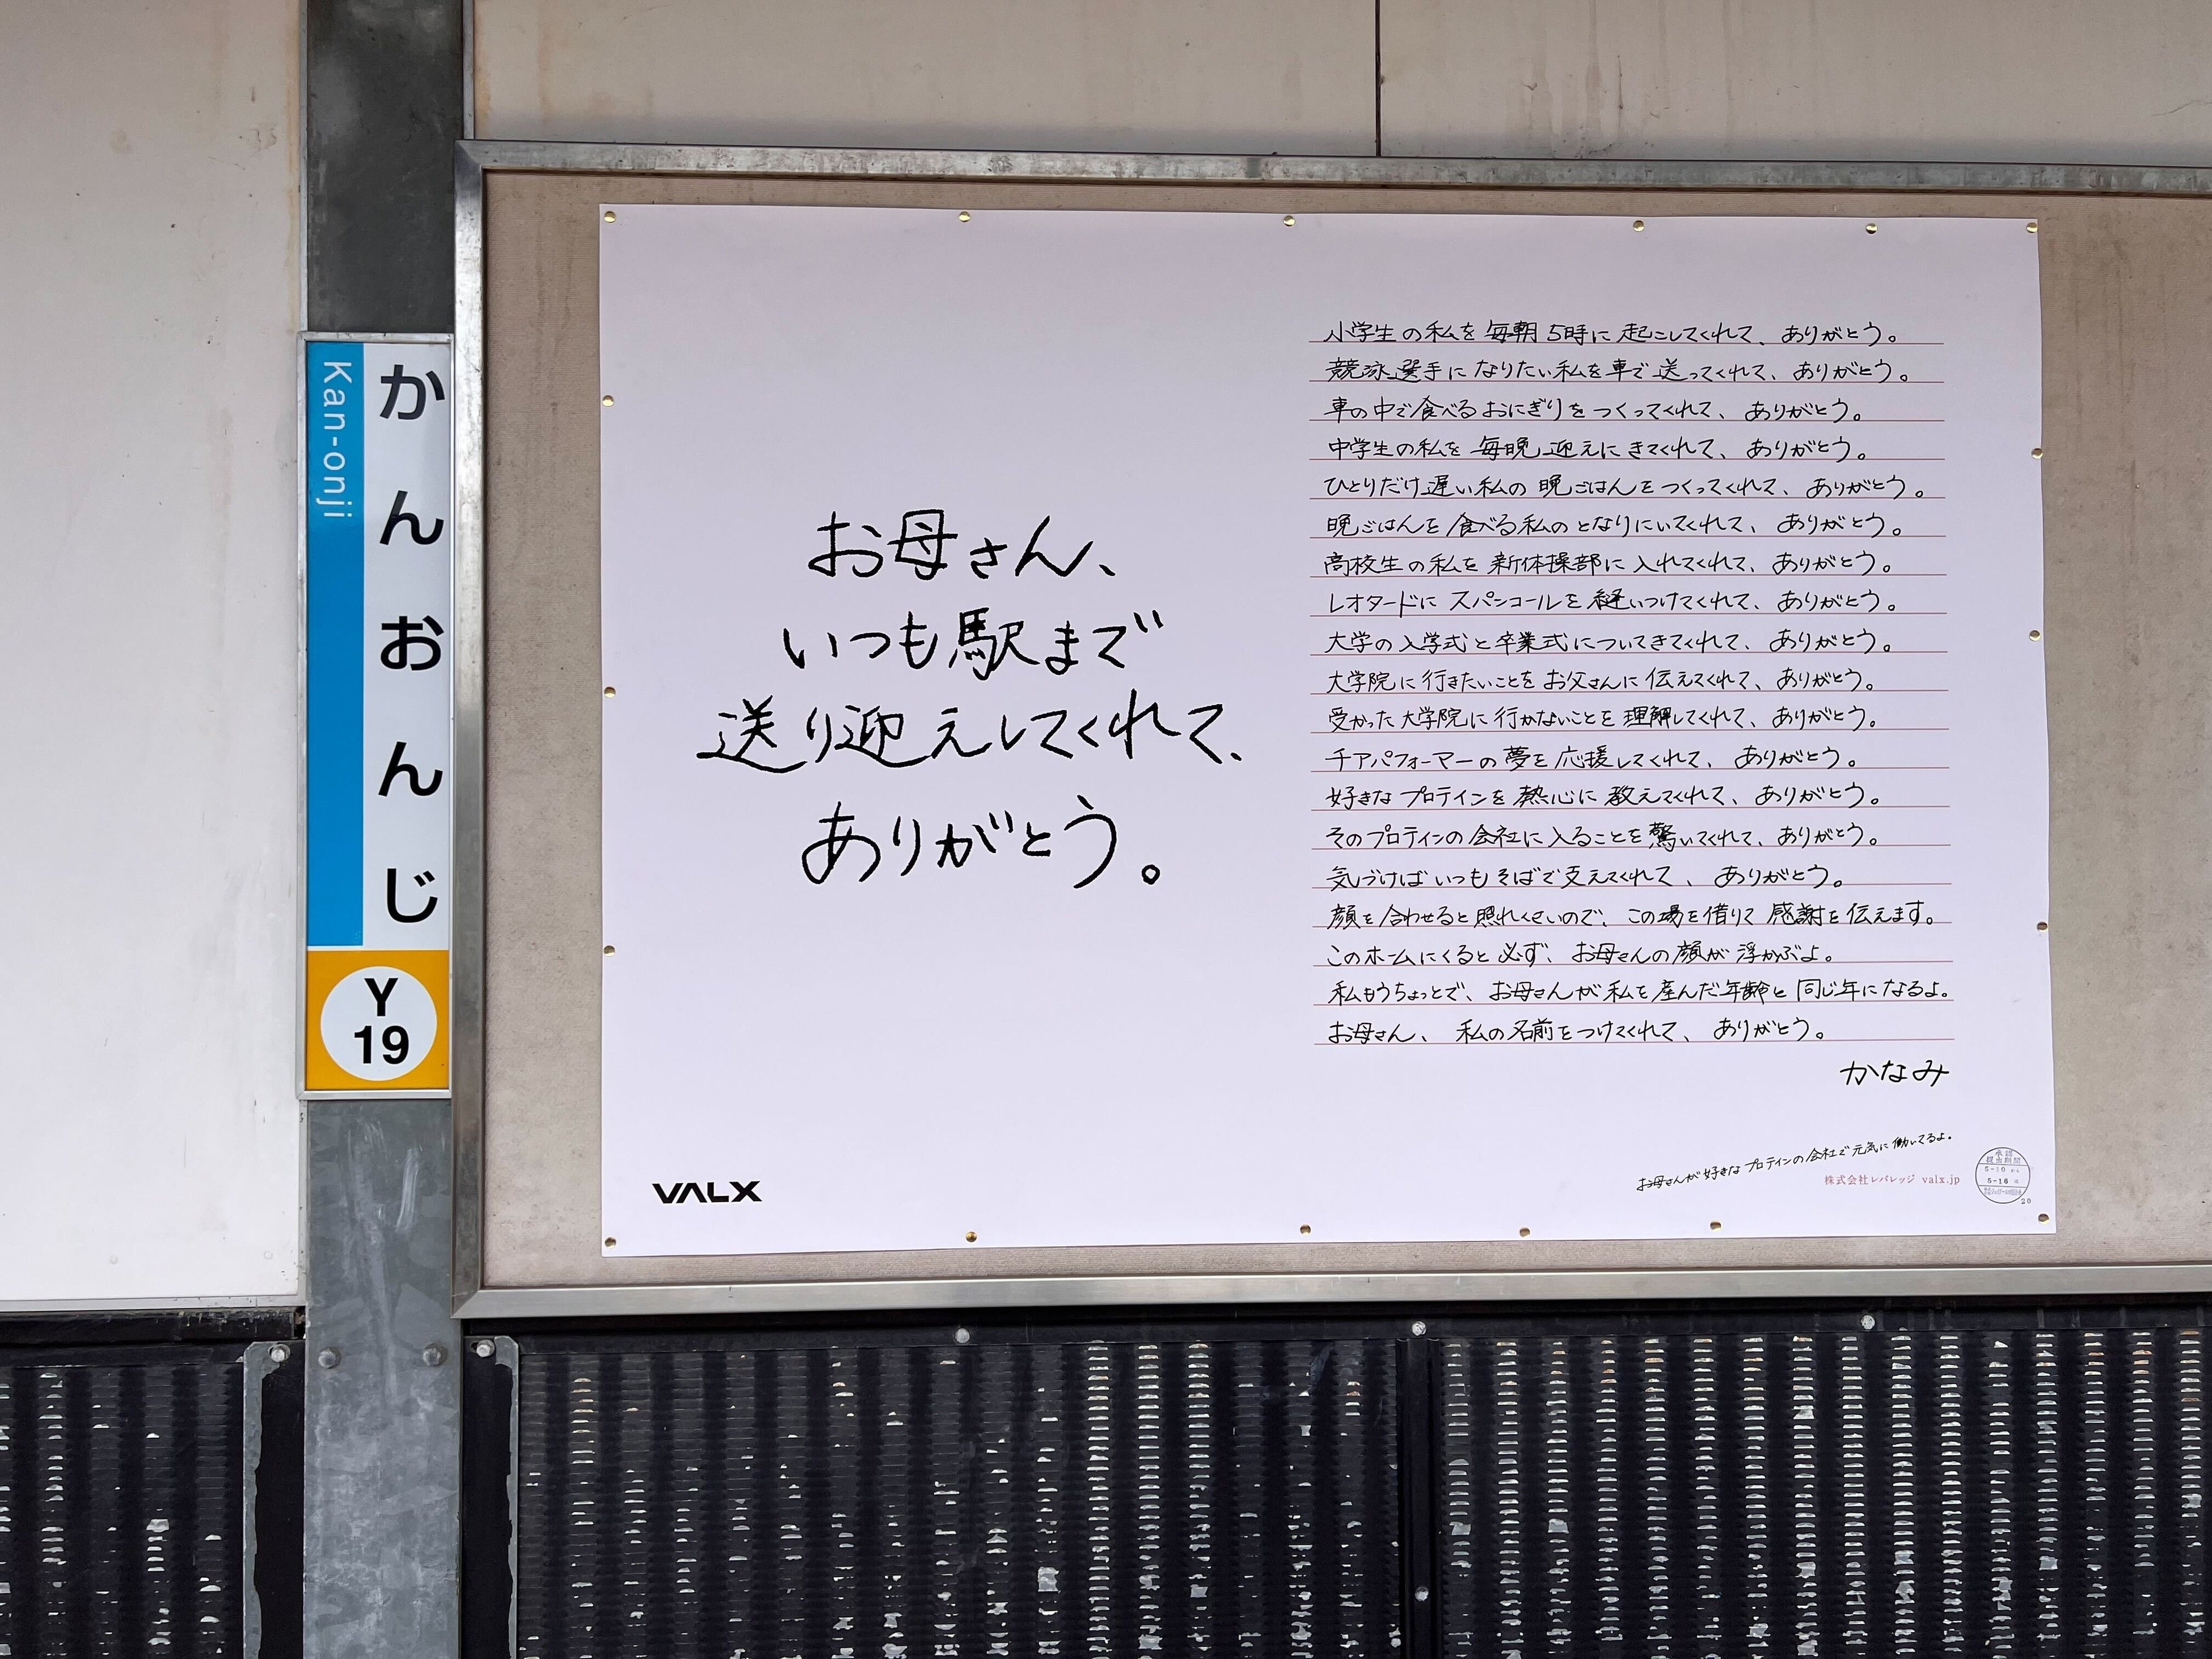 かんおんじ
Kan-onji
Y
19
お母さん、
いつも駅まで
送り迎えしてくれて、
ありがとう。
小学生の私を毎朝5時に起こしてくれて、ありがとう。
競泳選手になりたい私を車で送ってくれて、ありがとう。
車の中で食べるおにぎりをつくってくれて、ありがとう。
中学生の私を毎晩迎えにきてくれて、ありがとう。
ひとりだけ遅い私の晩ごはんをつくってくれて、ありがとう。
晩ごはんを食べる私のとなりにいてくれて、ありがとう。
高校生の私を新体操部に入れてくれて、ありがとう。
レオタードにスパンコールを縫いつけてくれて、ありがとう。
大学の入学式と卒業式についてきてくれて、ありがとう。
大学院に行きたいことをお父さんに伝えてくれて、ありがとう。
受かった大学院に行かないことを理解してくれて、ありがとう。
チアパフォーマーの夢を応援してくれて、ありがとう。
好きなプロテインを熱心に教えてくれて、ありがとう。
そのプロテインの会社に入ることを驚いてくれて、ありがとう。
気づけばいつもそばで支えてくれて、ありがとう。
顔を合わせると照れくさいので、この場を借りて感謝を伝えます。
このホームにくると必ず、お母さんの顔が浮かぶよ。
私もうちょっとで、お母さんが私を産んだ年齢と同じ年になるよ。
お母さん、私の名前をつけてくれて、ありがとう。
かなみ
お母さんが好きなプロテインの会社で元気に働いてるよ。
株式会社レバレッジ valx.jp
VALX
承認
掲出期間
5-10から
5-16
20